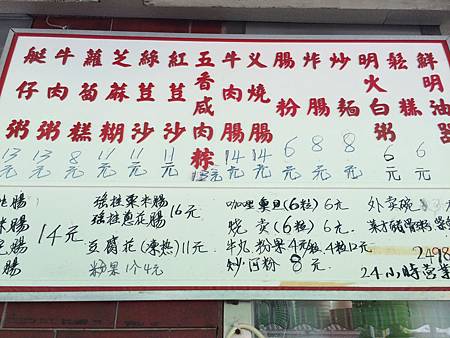 艇仔粥 13元
牛肉粥 13元
蘿蔔糕 8元
芝麻糊 11元
綠荳沙 11元
紅荳沙 11元
五香咸肉粽
牛肉腸 14元
义燒腸 14元
腸粉 6元
炸腸 8元
炒麵 8元
明火白粥 6元
鬆糕 6元
鮮明油器
腸
腸
腸
腸
14元
強拄粟米腸
強拄蔥花腸
16元
豆腐花(凍热)11元
粉果1个4元
咖喱魚旦(6粒)6元
烧卖(6粒)6元
牛丸 粉果4元粒,4粒12元
炒河粉 8元
外卖碗
2498
24小時营業